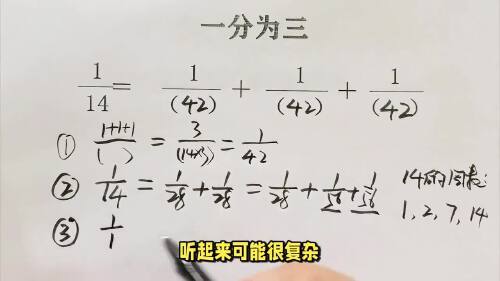 一分为三
1/14 = 1/(42) + 1/(42) + 1/(42)
① 1+1+1/( ) = 3/(14×3) = 1/42
② 1/14 = 1/28 + 1/28 = 1/28 + 1/56 + 1/56
14的因数:
1, 2, 7, 14
③ 1/1
听起来可能很复杂